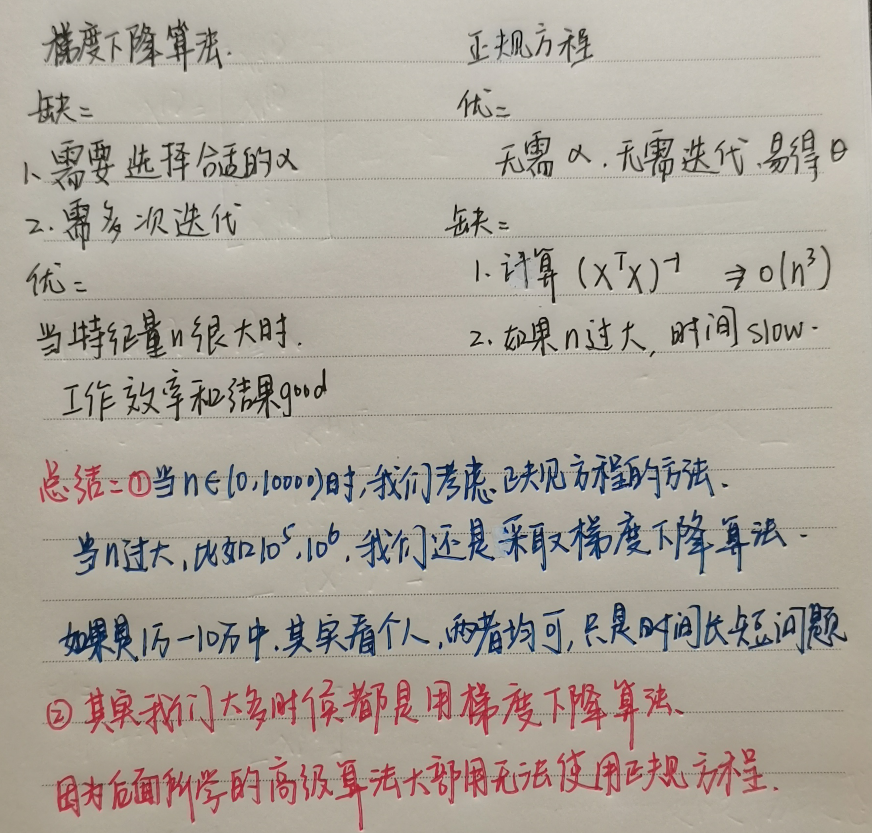 梯度下降算法.
缺:
1、需要选择合适的α
2.需多次迭代
优:
当特征量n很大时.
工作效率和结果good
正规方程
优:
无需α.无需迭代.易得θ
缺:
1.计算(XᵀX)⁻¹ ⇒ O(n³)
2.如果n过大,时间slow.
总结:①当n∈(0,10000)时,我们考虑正规方程的方法.
当n过大,比如10⁵,10⁶,我们还是采取梯度下降算法.
如果是1万-10万中.其实看个人,两者均可,只是时间长短问题
②其实我们大多时侯都是用梯度下降算法、
因为后面所学的高级算法大部用无法使用正规方程.